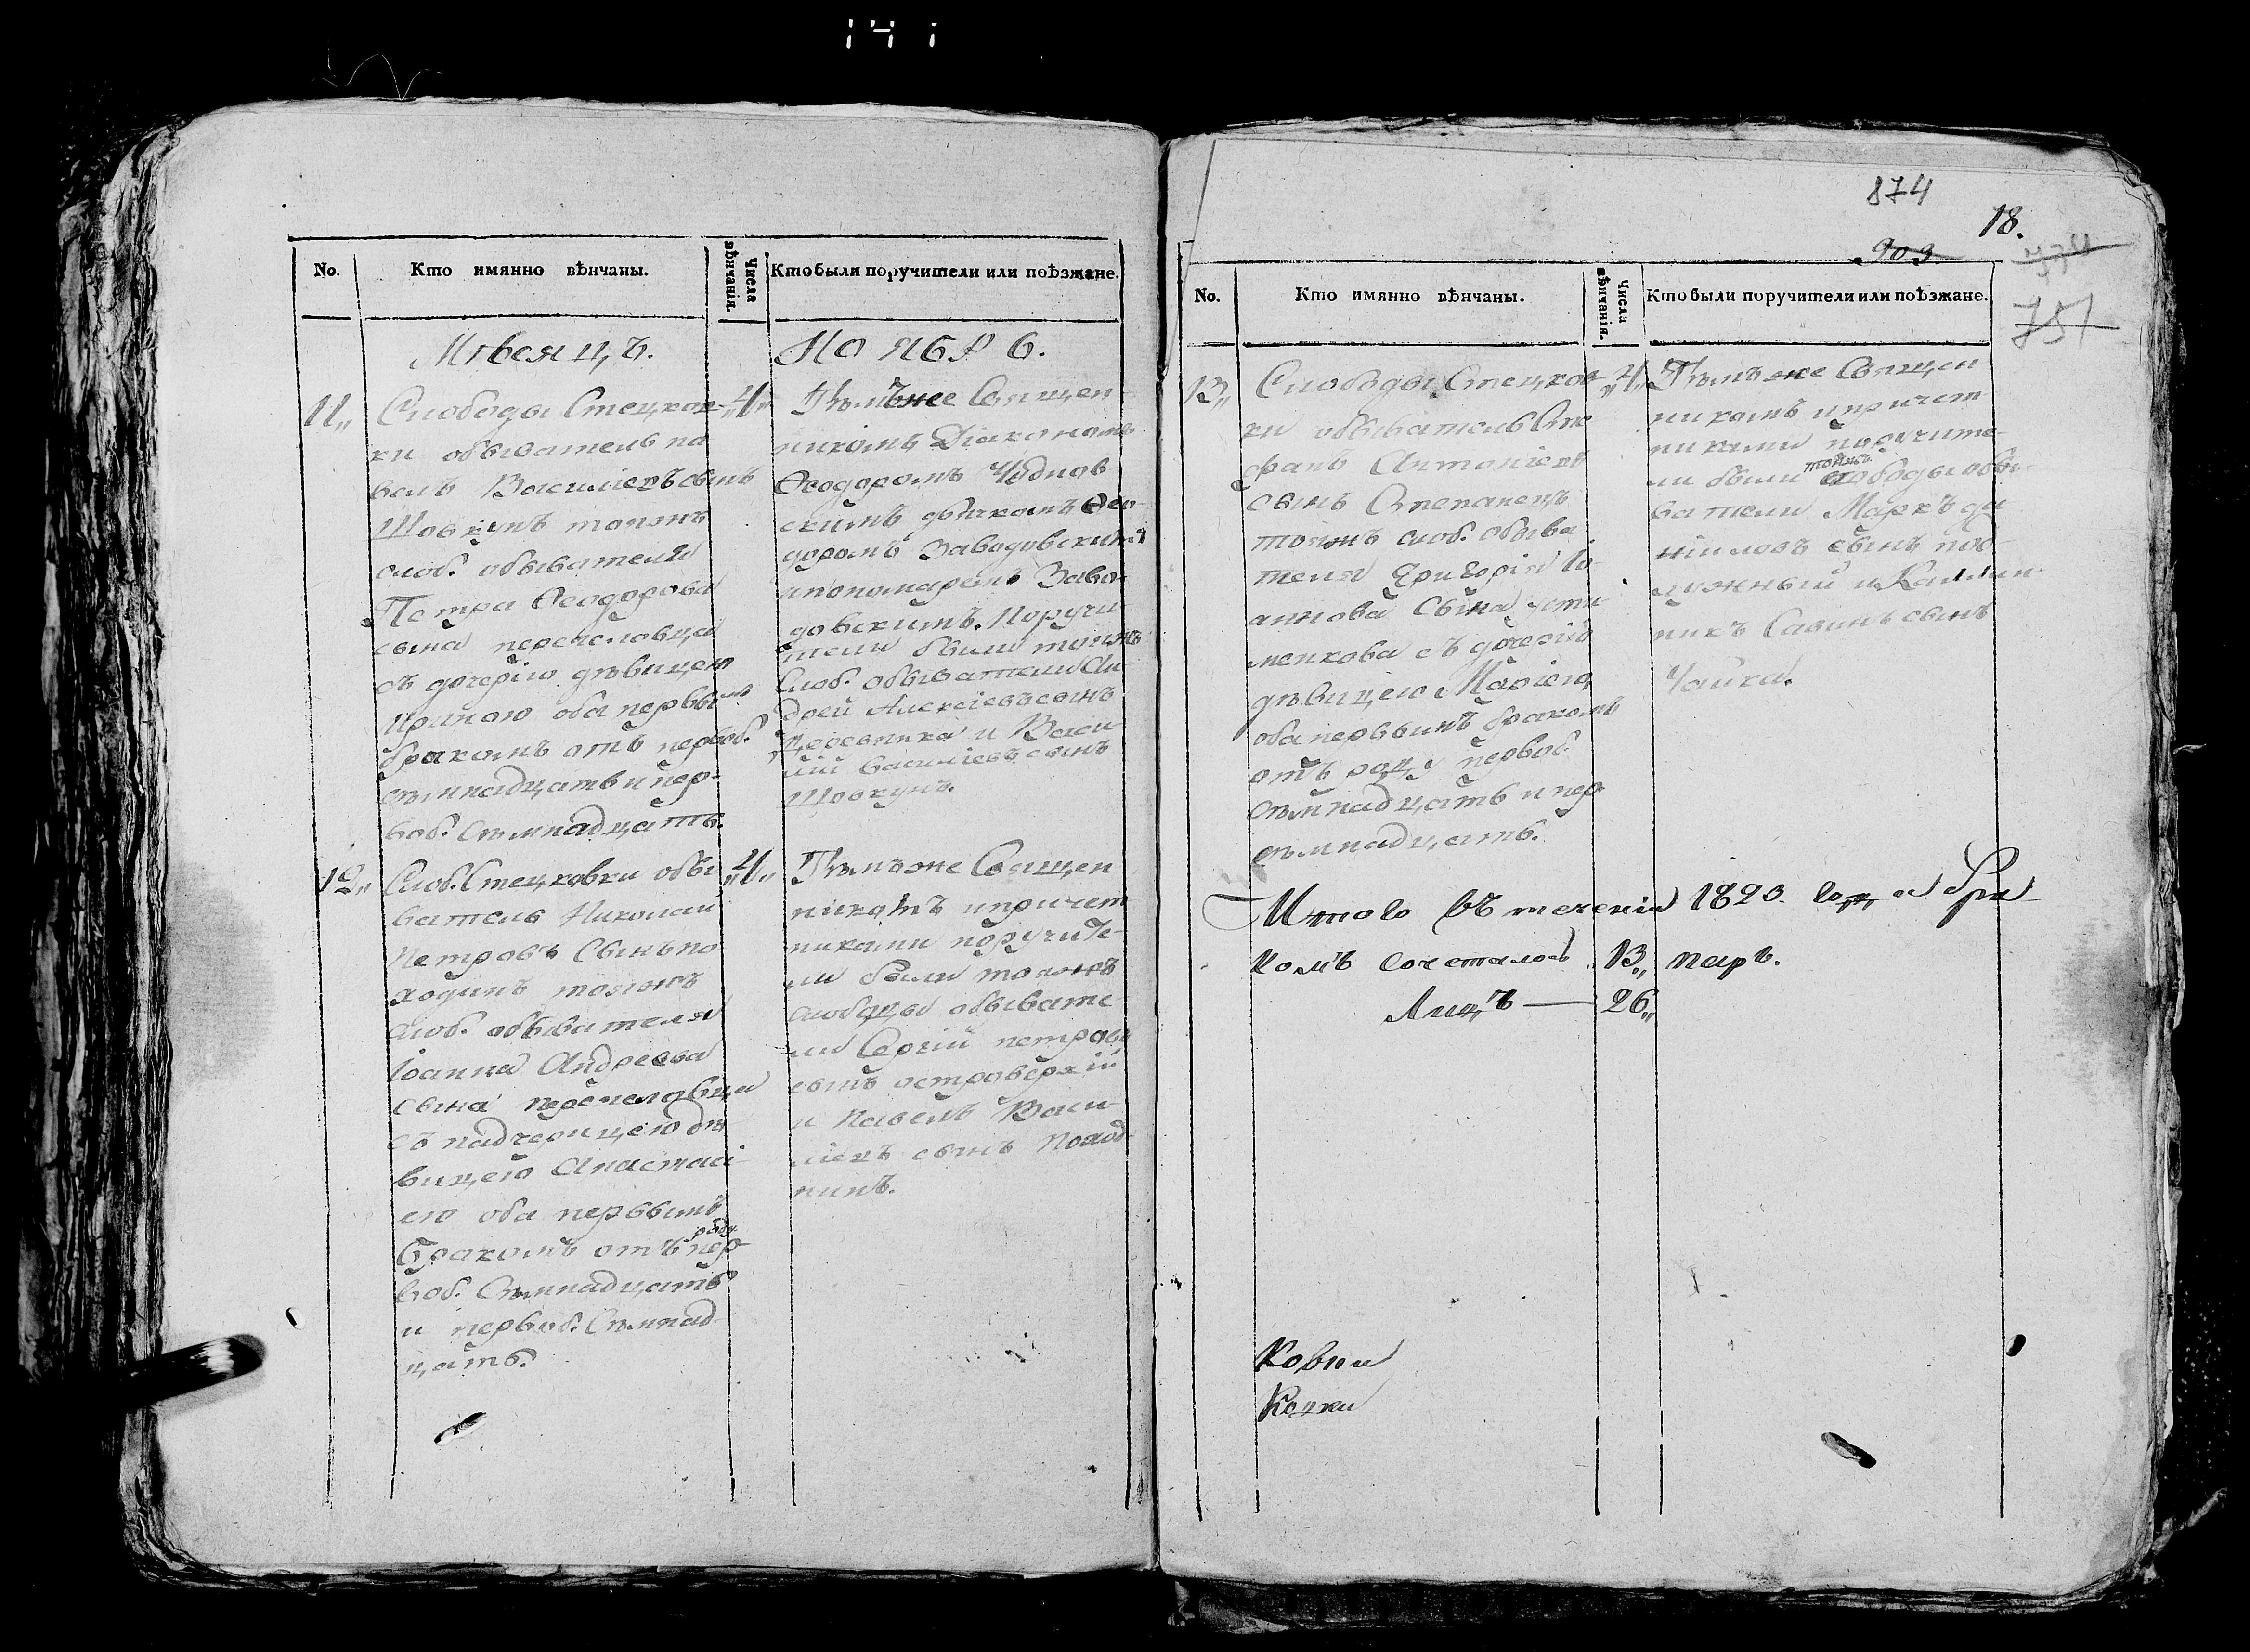 141
No.
Кто имянно вѣнчаны.
Числа вѣнчанія.
Кто были поручители или поѣзжане.
Мѣсяцъ.
Ноябрь.
11„
Слободы Стецков-
ки обыватель па
велъ Василіевъ сынъ
Шовкунъ тояжъ
слоб. обывателя
Петра Ѳеодорова
сына
съ дочерію дѣвицею
Ириною оба первымъ
бракомъ отъ первоб.
семнадцать и пер-
воб. семнадцать.
„4„
Тѣмъже Священ
никомъ Діакономъ
Ѳеодоромъ Чуднов
скимъ дьякомъ Ѳео-
доромъ Заводовскимъ
и пономаремъ Заво-
довскимъ. Поручи
тели были тояжъ
Слоб. обыватели Ан
дрей Алексіевъ сынъ
и Васи
лій Василіевъ сынъ
Шовкунъ.
12„
Слоб. Стецковки обы
ватель Николай
Петровъ Сынъ по
ходинъ тояжъ
слоб. обывателя
Іоанна Андреева
сына
съ падчерицею дѣ
вицею Анастасі-
ею оба первымъ
бракомъ отъ роду пер
воб. Семнадцать
и первоб. Семнад-
цать.
„4„
Тѣмъже Священ
никомъ и причет
никами поручите-
ли были тояжъ
слободы обывате
ли Сергій петровъ
сынъ островерхій
и Павелъ Васи-
ліевъ сынъ поход-
нинъ.
874
18.
903
751
No.
Кто имянно вѣнчаны.
Числа вѣнчанія.
Кто были поручители или поѣзжане.
13„
Слободы Стецков-
ки обыватель Сте
фанъ Антоніевъ
сынъ Степанецъ
тояжъ слоб. обыва
теля Григорія Іо-
аннова Сына усти
менкова съ дочерію
дѣвицею Маріею
оба первымъ бракомъ
отъ роду первоб.
Семнадцать и пер
семнадцать.
„4„
Тѣмъже Священ
никомъ и причет
никами поручите-
ли были тоижъ слободы обы-
ватели Маркъ да
ніиловъ сынъ под-
лужный и Каллин-
никъ Савинъ сынъ
Чайка.
Итого въ теченіи 1820. года бра-
комъ сочеталось 13„ паръ.
Лицъ — 26„